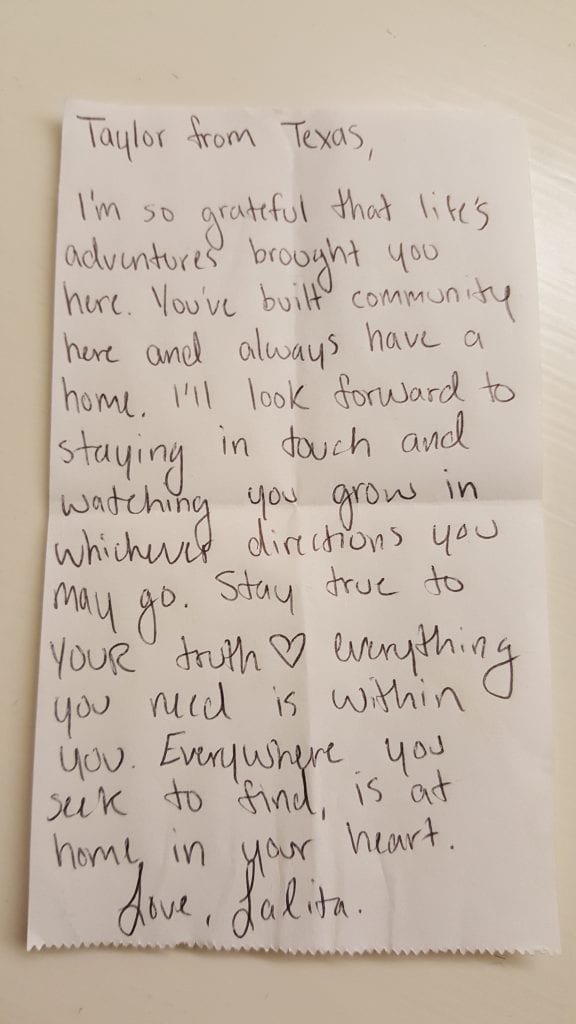 Taylor from Texas,
I'm so grateful that life's
adventures brought you
here. You've built community
here and always have a
home. I'll look forward to
staying in touch and
watching you grow in
whichever directions you
may go. Stay true to
YOUR truth ♡ everything
you need is within
you. Everywhere you
seek to find, is at
home, in your heart.
Love, Lalita.